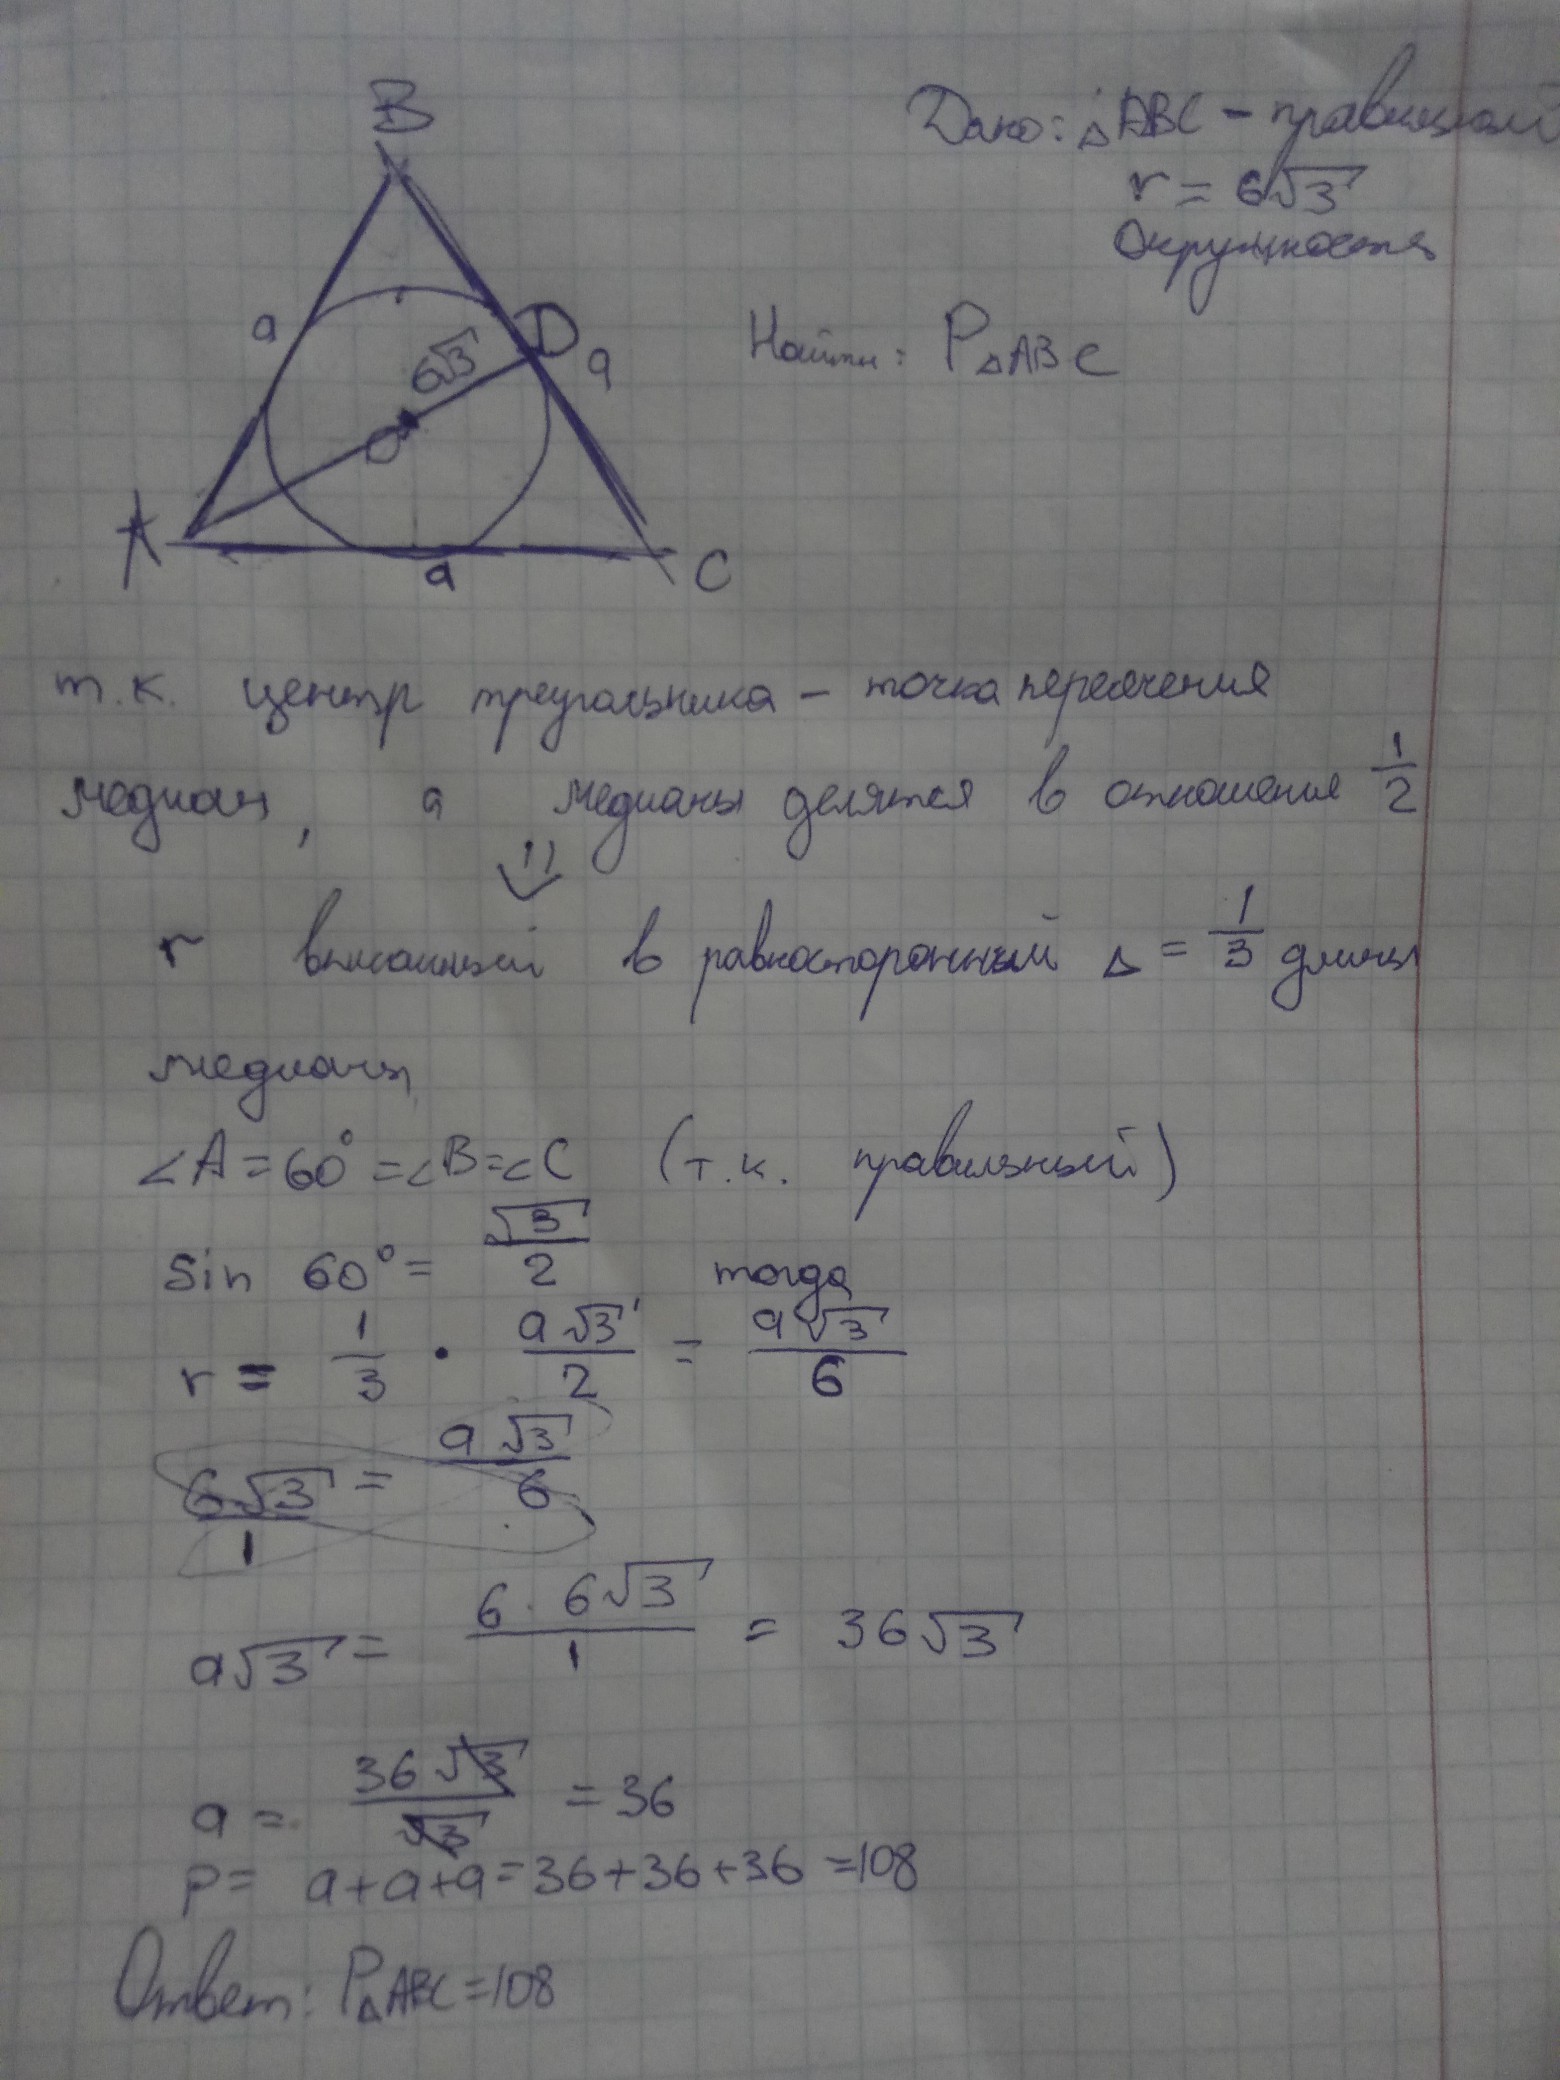 B
Дано: △ABC – правильный
r = 6√3
окружность
a
6√3
D
a
Найти: P△ABC
O
A
a
C
т.к. центр треугольника – точка пересечения
медиан, а медианы делятся в отношении 1/2
⇓
r вписанный в равносторонный △ = 1/3 длины
медианы
∠A = 60° = ∠B = ∠C (т.к. правильный)
sin 60° = √3/2 тогда
r = 1/3 · a√3/2 = a√3/6
6√3/1 = a√3/6
a√3 = 6 · 6√3/1 = 36√3
a = 36√3/√3 = 36
P = a+a+a = 36+36+36 = 108
Ответ: P△ABC = 108